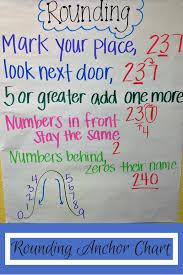 Rounding
Mark your place, 237
look next door, 237
5 or greater add one more
Numbers in front 237
stay the same +4
Numbers behind, 2
zeros their name
240
4 5
3 6
2 7
1 8
0 9
Rounding Anchor Chart